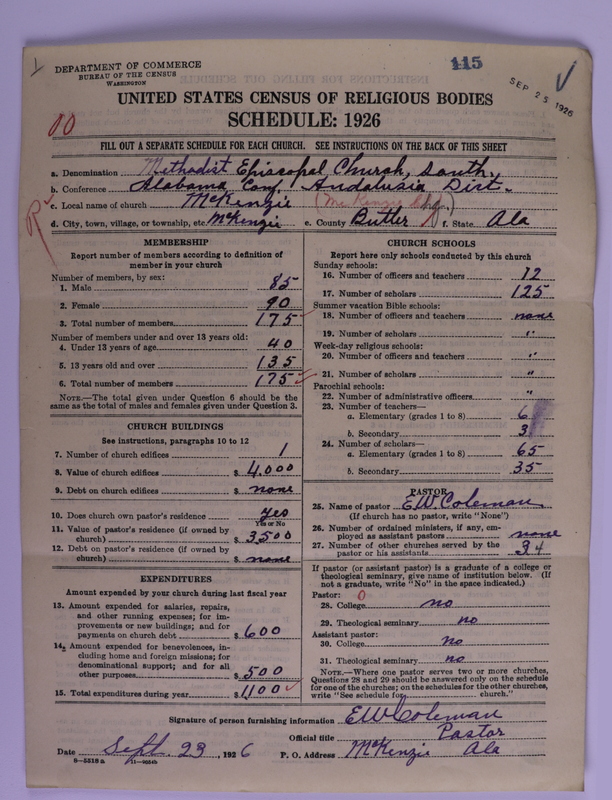 1
DEPARTMENT OF COMMERCE
BUREAU OF THE CENSUS
WASHINGTON
115
SEP 25 1926
UNITED STATES CENSUS OF RELIGIOUS BODIES
SCHEDULE: 1926
00
FILL OUT A SEPARATE SCHEDULE FOR EACH CHURCH. SEE INSTRUCTIONS ON THE BACK OF THIS SHEET
a. Denomination Methodist Episcopal Church, South,
b. Conference Alabama Conf. Andalusia Dist.
c. Local name of church McKenzie (McKenzie Chge.)
d. City, town, village, or township, etc. McKenzie e. County Butler f. State Ala
R
MEMBERSHIP
Report number of members according to definition of
member in your church
Number of members, by sex:
1. Male 85
2. Female 90
3. Total number of members 175
Number of members under and over 13 years old:
4. Under 13 years of age 40
5. 13 years old and over 135
6. Total number of members 175
NOTE.—The total given under Question 6 should be the
same as the total of males and females given under Question 3.
CHURCH BUILDINGS
See instructions, paragraphs 10 to 12
7. Number of church edifices 1
8. Value of church edifices $ 4,000
9. Debt on church edifices $ none
10. Does church own pastor's residence yes
Yes or No
11. Value of pastor's residence (if owned by
church) $ 3500
12. Debt on pastor's residence (if owned by
church) $ none
EXPENDITURES
Amount expended by your church during last fiscal year
13. Amount expended for salaries, repairs,
and other running expenses; for im-
provements or new buildings; and for
payments on church debt $ 600
14. Amount expended for benevolences, in-
cluding home and foreign missions; for
denominational support; and for all
other purposes $ 500
15. Total expenditures during year $ 1100
CHURCH SCHOOLS
Report here only schools conducted by this church
Sunday schools:
16. Number of officers and teachers 12
17. Number of scholars 125
Summer vacation Bible schools:
18. Number of officers and teachers none
19. Number of scholars "
Week-day religious schools:
20. Number of officers and teachers "
21. Number of scholars "
Parochial schools:
22. Number of administrative officers "
23. Number of teachers—
a. Elementary (grades 1 to 8) 6
b. Secondary 3
24. Number of scholars—
a. Elementary (grades 1 to 8) 65
b. Secondary 35
PASTOR
25. Name of pastor E.W. Coleman
(If church has no pastor, write "None")
26. Number of ordained ministers, if any, em-
ployed as assistant pastors none
27. Number of other churches served by the
pastor or his assistants 34
If pastor (or assistant pastor) is a graduate of a college or
theological seminary, give name of institution below. (If
not a graduate, write "No" in the space indicated.)
Pastor: 0
28. College no
29. Theological seminary no
Assistant pastor:
30. College no
31. Theological seminary no
NOTE.—Where one pastor serves two or more churches,
Questions 28 and 29 should be answered only on the schedule
for one of the churches; on the schedules for the other churches,
write "See schedule for church."
Signature of person furnishing information E.W. Coleman
Official title Pastor
Date Sept. 23, 1926 P. O. Address McKenzie Ala
8—5518a 11—9054b